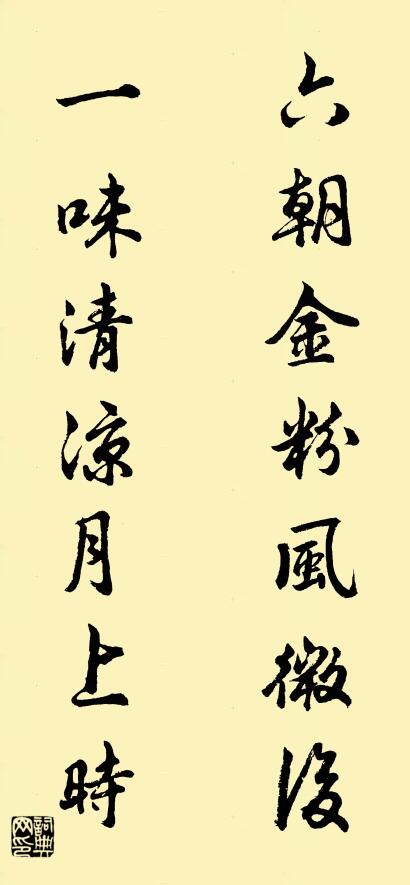 六朝金粉風微後
一味清涼月上時
詞典网印